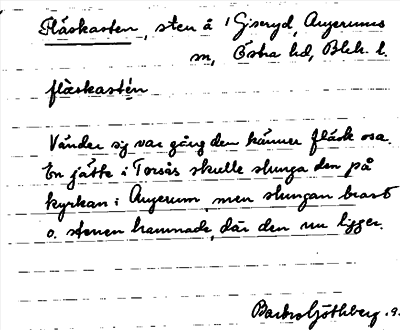 Fläskasten, sten å 1 Giseryd, Augerums
sn, Östra hd, Blek. l.
fla̋skastén
Vänder sig var gång den känner fläsk osa.
En jätte i Torsås skulle slunga den på
kyrkan i Augerum, men slungan brast
o. stenen hamnade, där den nu ligger.
Barbro Götheberg.